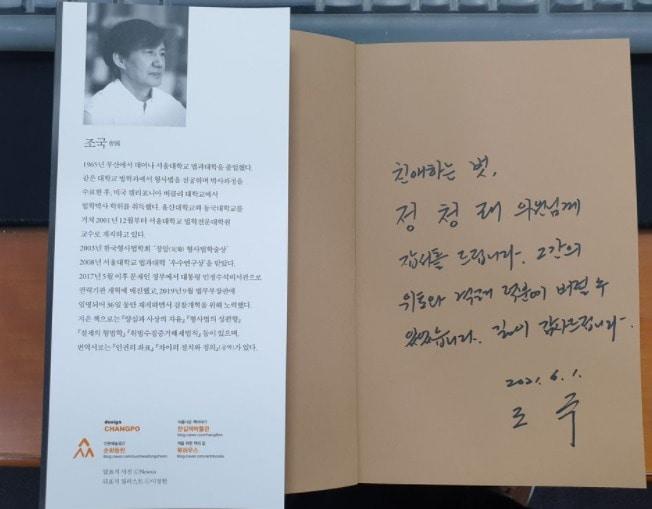 조국 曺國
1965년 부산에서 태어나 서울대학교 법과대학을 졸업했다.
같은 대학교 법학과에서 형사법을 전공하며 박사과정을
수료한 후, 미국 캘리포니아 버클리 대학교에서
법학박사 학위를 취득했다. 울산대학교와 동국대학교를
거쳐 2001년 12월부터 서울대학교 법학전문대학원
교수로 재직하고 있다.
2003년 한국형사법학회 '정암(定岩) 형사법학술상'
2008년 서울대학교 법과대학 '우수연구상'을 받았다.
2017년 5월 이후 문재인 정부에서 대통령 민정수석비서관으로
권력기관 개혁에 매진했고, 2019년 9월 법무부장관에
임명되어 36일 동안 재직하면서 검찰개혁을 위해 노력했다.
지은 책으로는 『양심과 사상의 자유』 『형사법의 성편향』
『절제의 형법학』 『위법수집증거배제법칙』 등이 있으며,
번역서로는 『인권의 좌표』 『차이의 정치와 정의』(공역)가 있다.
design
CHANGPO
아름다운 책이야기
한길책박물관
인문예술공간
순화동천
책을 위한 책의 집
북하우스
앞표지 사진 ©Newsis
친애하는 벗,
정청래 의원님께
감사를 드립니다. 그간의
위로와 격려 덕분에 버틸 수
있었습니다. 깊이 감사드립니다.
2021. 6. 1.
조 국